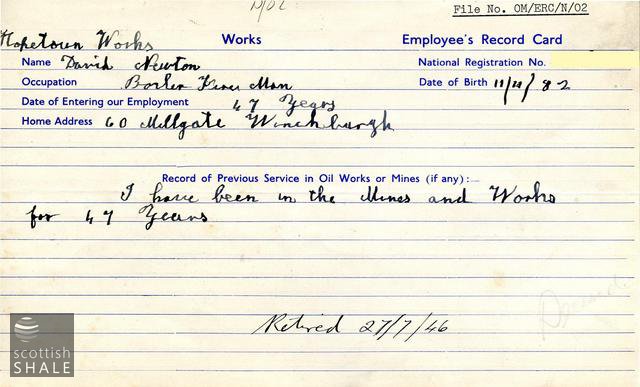 N/02
File No. OM/ERC/N/02
Hopetown Works Works Employee's Record Card
Name David Newton National Registration No.
Occupation Boiler Fire Man Date of Birth 11/11/82
Date of Entering our Employment 47 Years
Home Address 60 Millgate Winchburgh
Record of Previous Service in Oil Works or Mines (if any):—
I have been in the Mines and Works
for 47 Years
Retired 27/7/46
scottish
SHALE